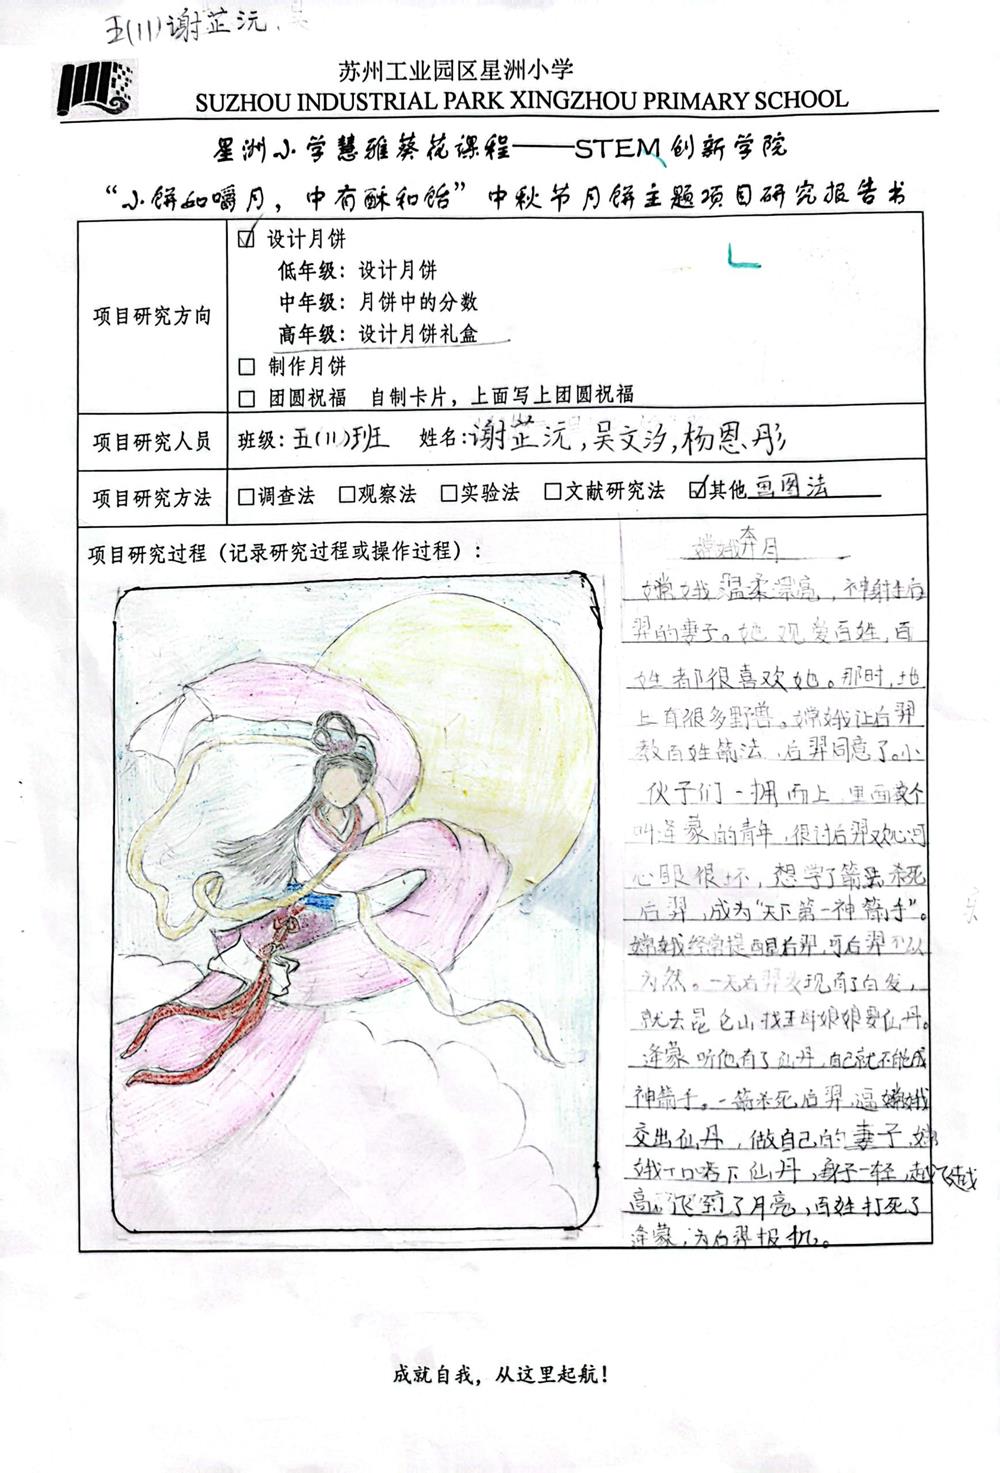 五(11)谢芷沅、吴
苏州工业园区星洲小学
SUZHOU INDUSTRIAL PARK XINGZHOU PRIMARY SCHOOL
星洲小学慧雅葵花课程——STEM创新学院
“小饼如嚼月，中有酥和饴”中秋节月饼主题项目研究报告书
项目研究方向
☑ 设计月饼
低年级：设计月饼
中年级：月饼中的分数
高年级：设计月饼礼盒
□ 制作月饼
□ 团圆祝福 自制卡片，上面写上团圆祝福
项目研究人员 班级：五(11)班 姓名：谢芷沅，吴文汐，杨恩彤
项目研究方法 □调查法 □观察法 □实验法 □文献研究法 ☑其他画图法
项目研究过程（记录研究过程或操作过程）：
嫦娥奔月
嫦娥温柔漂亮，神射手后
羿的妻子。她观爱百姓，百
姓都很喜欢她。那时，地
上有很多野兽。嫦娥让后羿
教百姓箭法，后羿同意了。小
伙子们一拥而上，里面有个
叫逢蒙的青年，很讨后羿欢心，可
心眼很坏，想学了箭法杀死
后羿，成为“天下第一神箭手”。
嫦娥经常提醒后羿，可后羿不以
为然。一天后羿发现有了白发，
就去昆仑山找王母娘娘要仙丹。
逢蒙听他有了仙丹，自己就不能成
神箭手。一箭杀死后羿，逼嫦娥
交出仙丹，做自己的妻子，嫦
娥一口吞下仙丹，身子一轻，越飞越
高，飞到了月亮，百姓打死了
逢蒙，为后羿报仇。
成就自我，从这里起航！